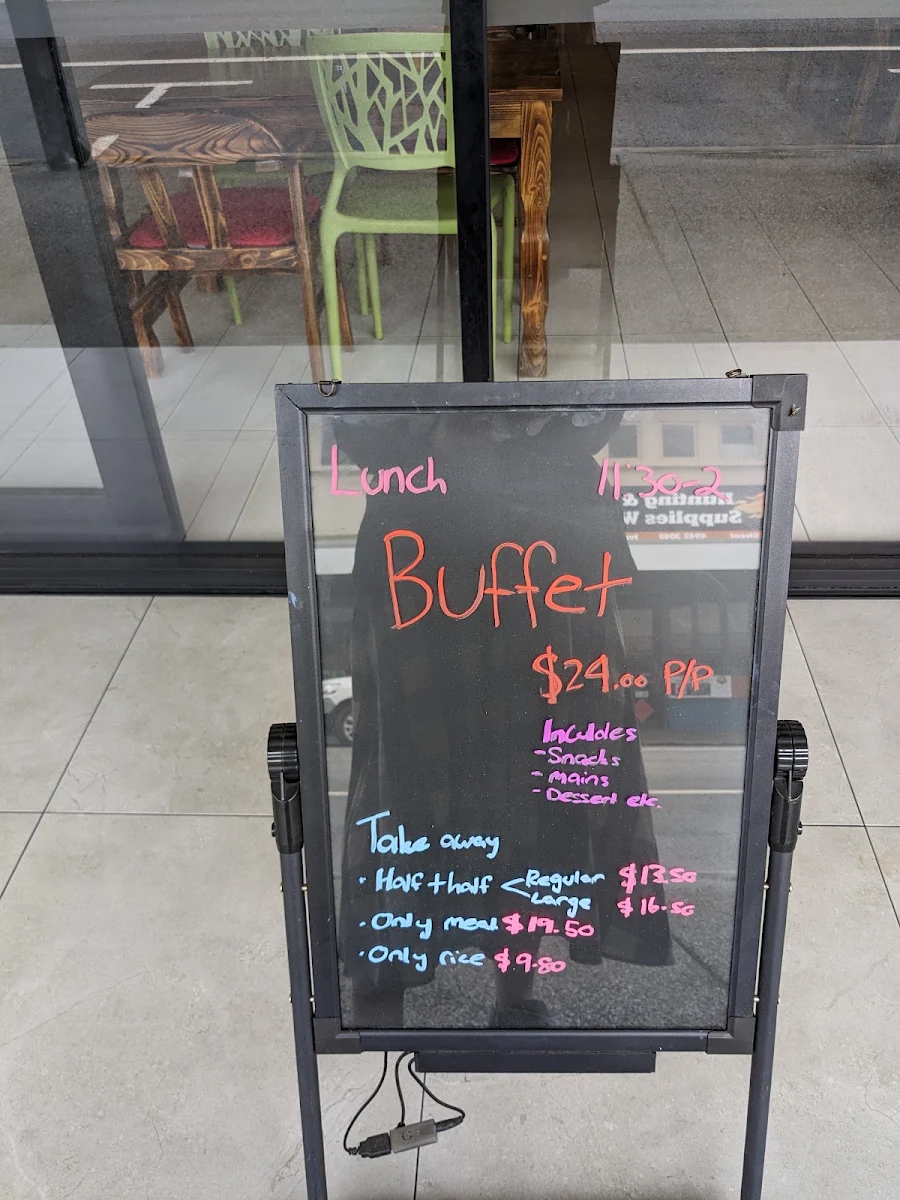 Lunch 11:30-2
Buffet
$24.00 P/P
Includes
- Snacks
- mains
- Dessert etc.
Take away
· Half + half < Regular $13.50
Large $16.50
· Only meat $19.50
· Only rice $9.80
Hunting &
Supplies W
4945 2040